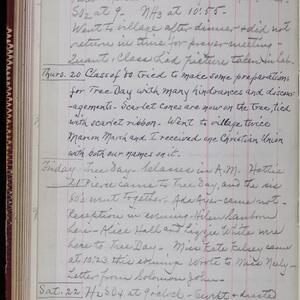 SO2 at 9. NH3 at 10:55.
Went to village after dinner & did not
return in time for prayer meeting -
Quant. Class had picture taken in Lab.
Thurs. 20 Class of 80 tried to make some preparations
for Tree Day with many hindrances and discour-
agements - Scarlet Cones are now on the tree, tied
with scarlet ribbon. - Went to village twice
Marion Marsh and I received one Christian Union
with both our names on it.
Friday Tree Day - Classes in A.M. Hattie
21 Pierce came to Tree Day, and the six
80's went together. Ada Ayer came not -
Reception in evening - Helen Sanborn
here - Alice Hall and Lizzie White were
here to Tree Day. Miss Kate Kelsey came
at 10:23 this evening. Wrote to Miss Neely -
Letter from Solomon John -
Sat. 22 H2SO4 at 9 o'clock -